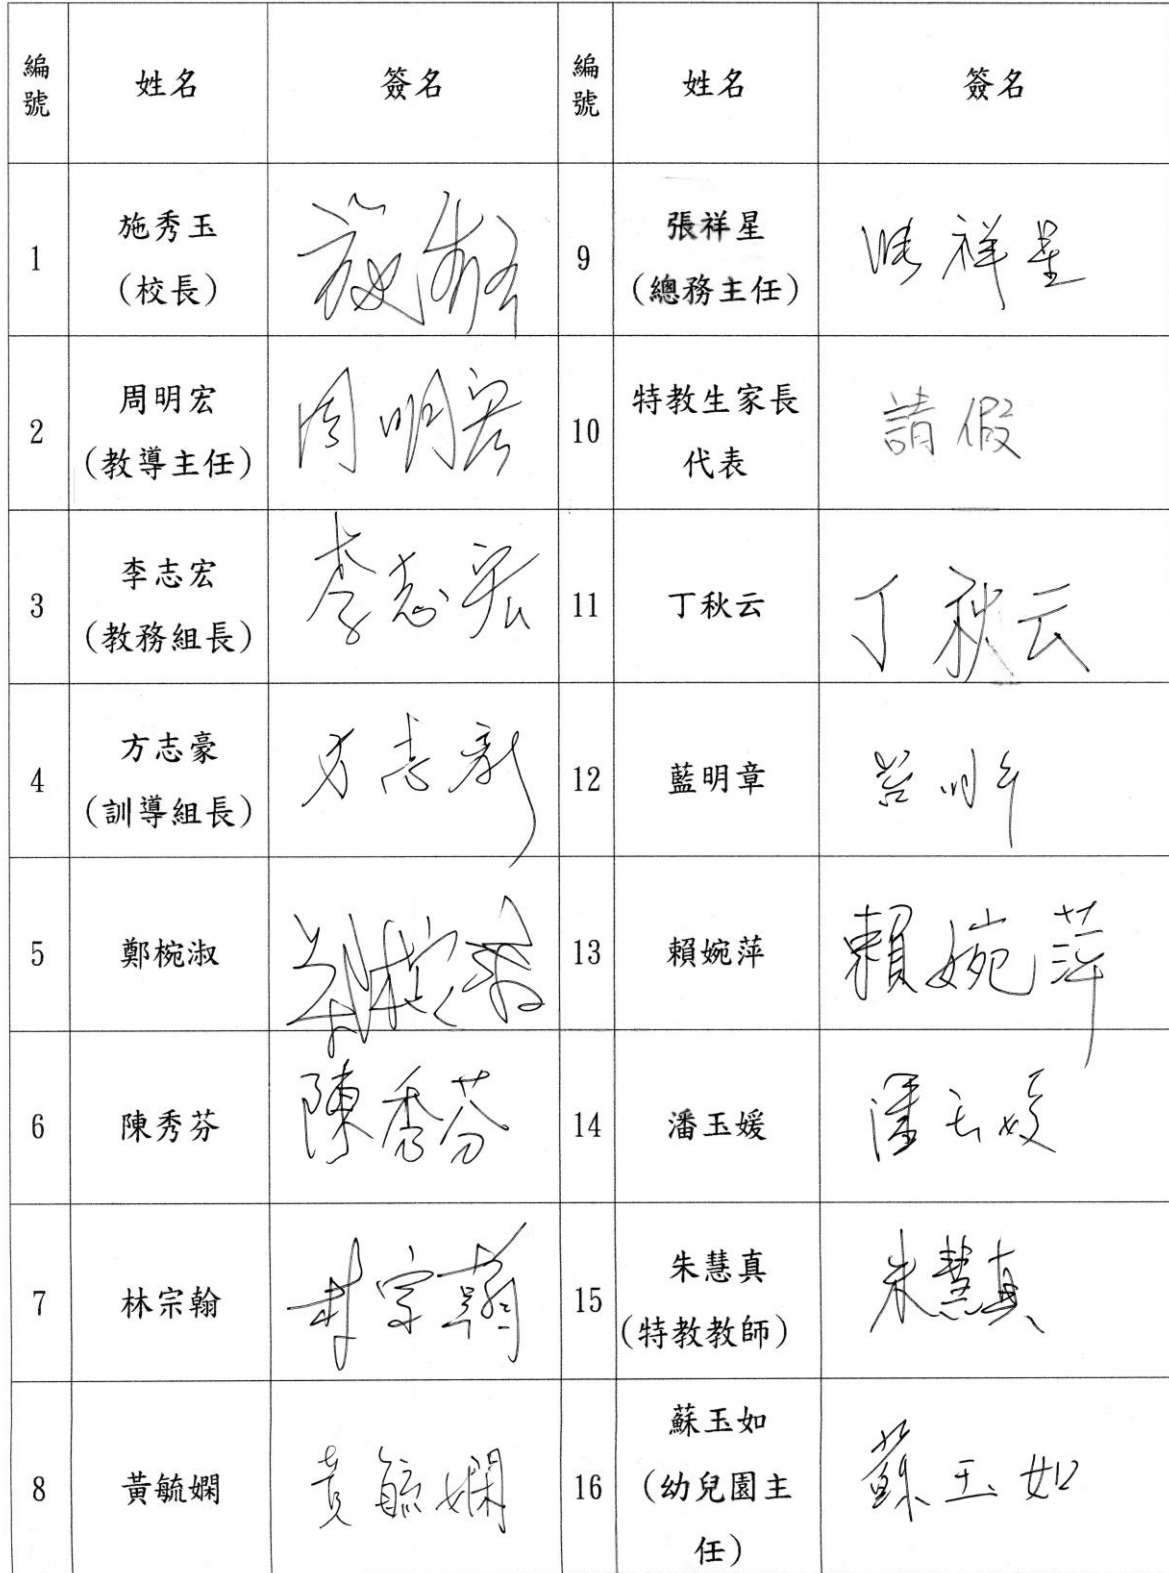 編號 姓名 簽名 編號 姓名 簽名
1 施秀玉 (校長) 施秀玉 9 張祥星 (總務主任) 張祥星
2 周明宏 (教導主任) 周明宏 10 特教生家長代表 請假
3 李志宏 (教務組長) 李志宏 11 丁秋云 丁秋云
4 方志豪 (訓導組長) 方志豪 12 藍明章
5 鄭椀淑 鄭椀淑 13 賴婉萍 賴婉萍
6 陳秀芬 陳秀芬 14 潘玉媛 潘玉媛
7 林宗翰 林宗翰 15 朱慧真 (特教教師) 朱慧真
8 黃毓嫻 黃毓嫻 16 蘇玉如 (幼兒園主任) 蘇玉如